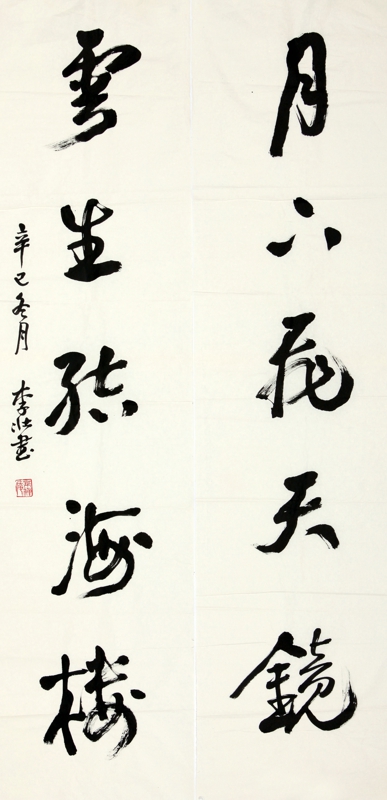 月下飛天鏡
雲生結海樓
辛巳冬月 李壯書